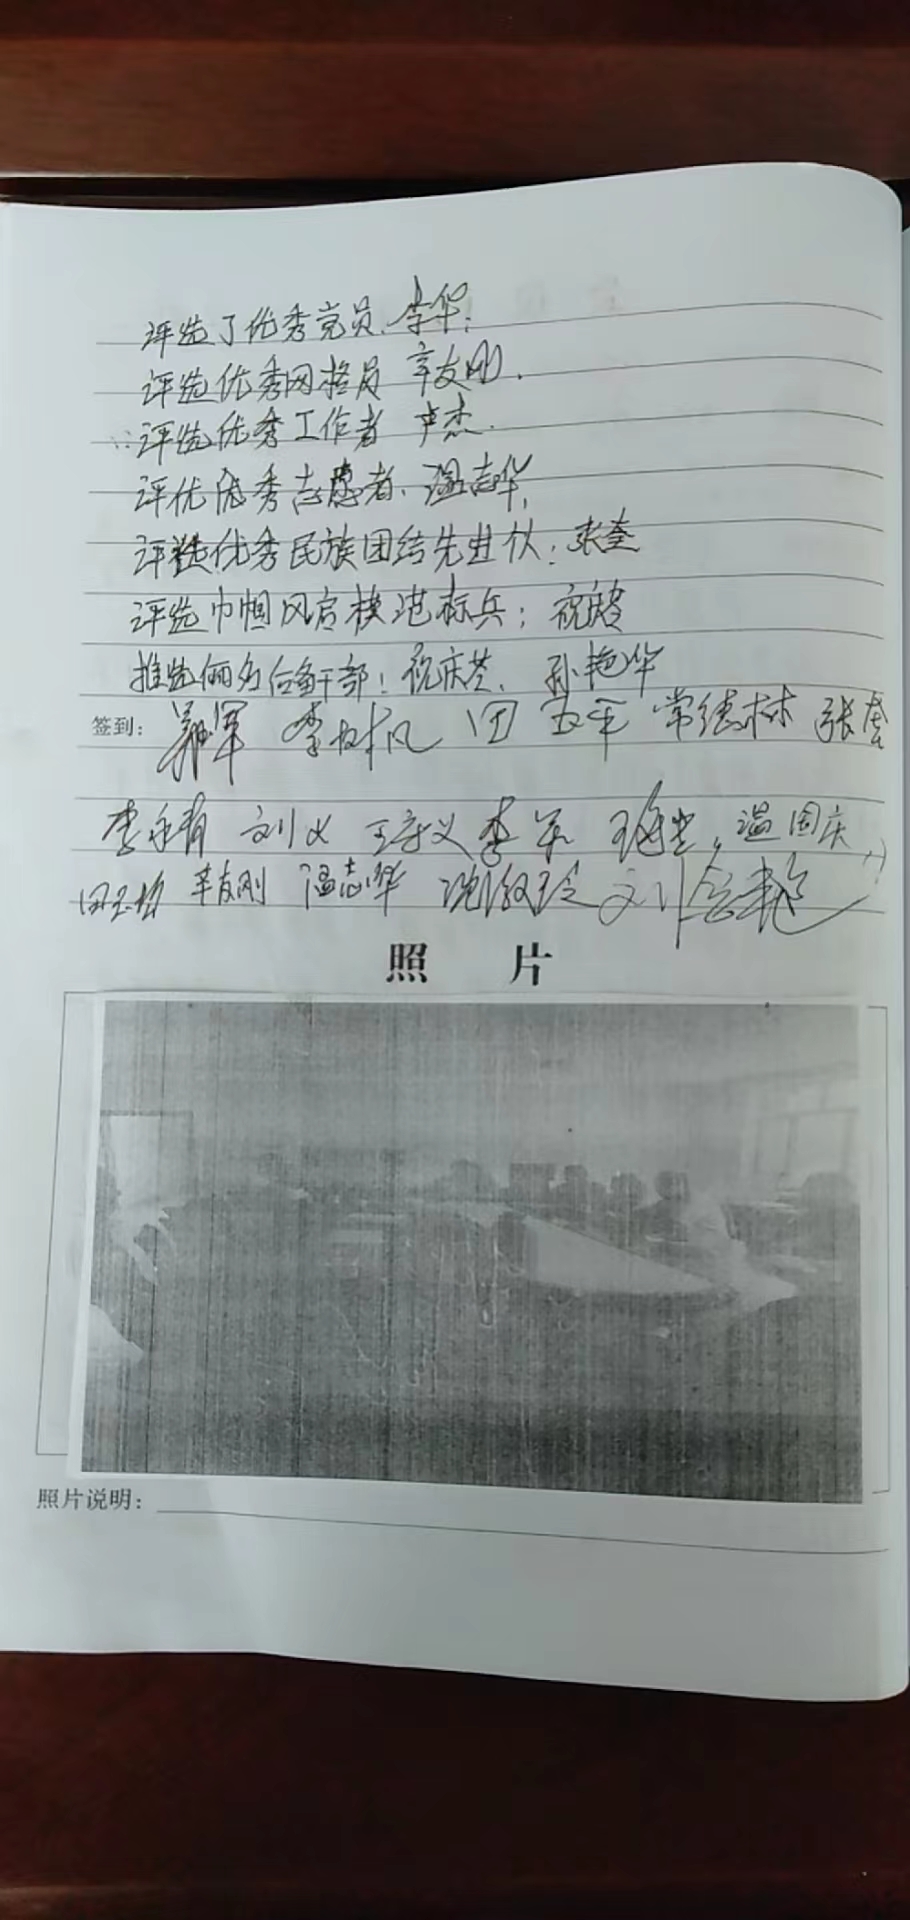 评选了优秀党员、李华;
评选优秀网格员 辛友刚.
评选优秀工作者 卢杰.
评优优秀志愿者、温志华,
评选优秀民族团结先进仪: 张奎
评选巾帼风启模范标兵: 祝庆
推选俩名后备干部: 祝庆芝、孙艳华
签到: 军 李树凤 田 玉平 常德林 张奎
李 刘义 王守义 李军 温国庆
辛友刚 温志华 沈淑玲 刘金艳
照 片
照片说明: